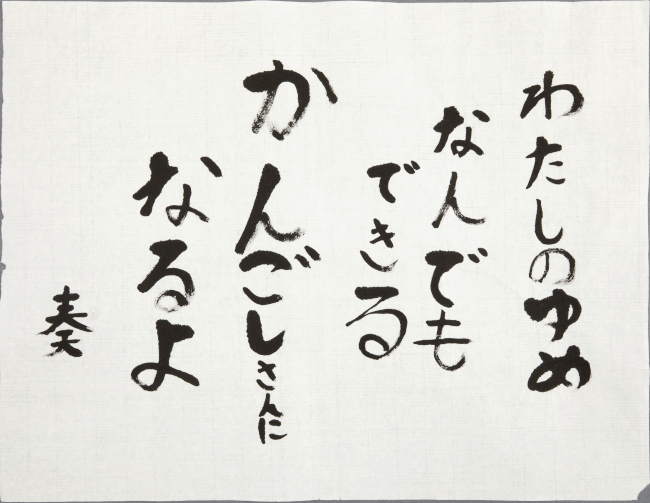 わたしのゆめ
なんでも
できる
かんごしさんに
なるよ
奏